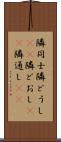 隣同士隣どうし
隣どおし
隣通し